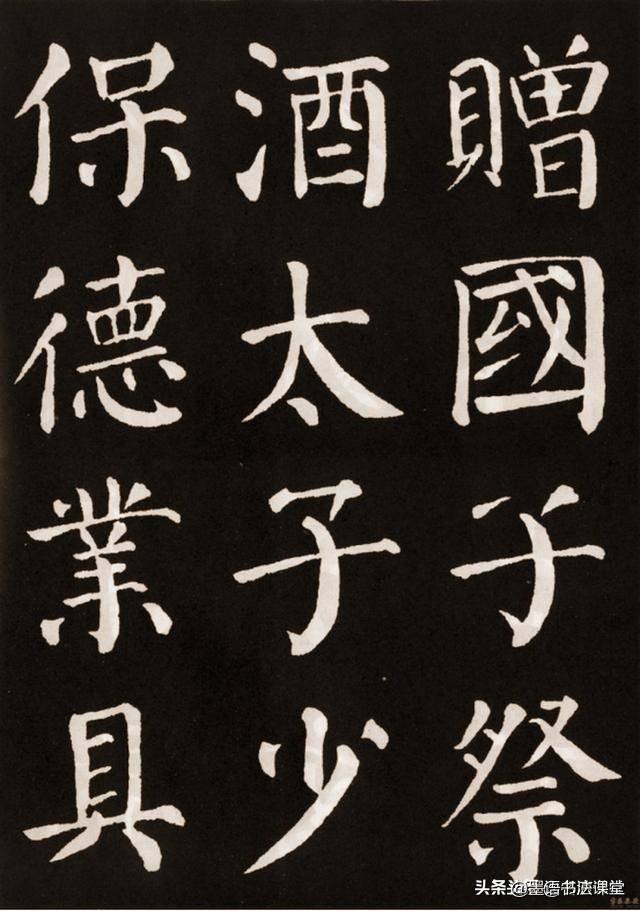 贈國子祭
酒太子少
保德業具
头条 @墨语书法课堂